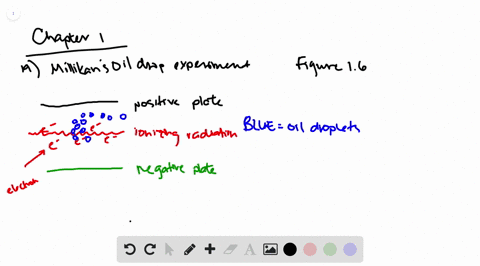 1
Chapter 1
A) Millikan's Oil drop experiment Figure 1.6
positive plate
e⁻ e⁻ ionizing radiation BLUE = oil droplets
e⁻ e⁻ e⁻
electron
negative plate
A